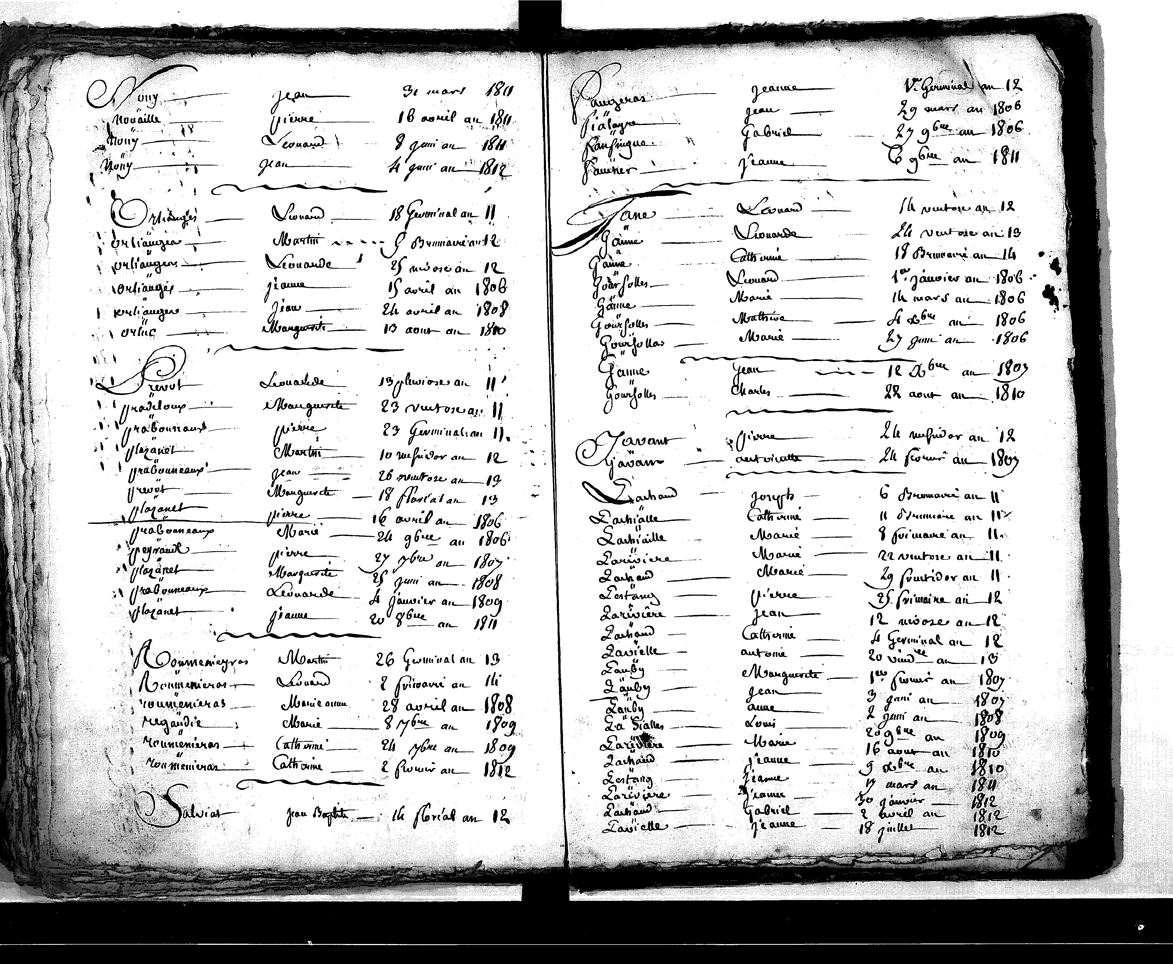 Nony jean 31 mars 1811
nouaille pierre 16 avril an 1811
Nony Léonard 8 juin an 1811
Nony jean 4 juin an 1812
Orliangès Léonard 18 Germinal an 11
orlianges Martin 9 Brumaire an 12
orlianges Léonarde 25 nivose an 12
orlianges jeanne 15 avril an 1806
orlianges jean 24 avril an 1808
orluc Marguerite 13 aout an 1810
Prevot Léonarde 19 pluviose an 11
pradeloux Marguerite 23 ventose an 11
prabonnaux pierre 23 Germinal an 11
plazanet Martin 10 messidor an 12
prabonneaux jean 26 ventose an 13
prevot Marguerite 18 floréal an 13
plazanet pierre 16 avril an 1806
prabonneaux Marie 24 9bre an 1806
peyrault pierre 27 7bre an 1807
plazanet Marguerite 25 juin an 1808
prabonneaux Léonarde 4 janvier an 1809
plazanet jeanne 20 8bre an 1811
Roumenieyras Martin 26 Germinal an 13
Roumenieras Léonard 2 frimaire an 14
roumenieras Marie anne 28 avril an 1808
regaudie Marie 8 7bre an 1809
roumenieras Catherine 24 7bre an 1809
roumenieras Catherine 2 fevrier an 1812
Salviat jean Baptiste 14 floréal an 12
Faugeras jeanne 1er Germinal an 12
jean 29 mars an 1806
Gabriel 27 9bre an 1806
jeanne 6 9bre an 1811
Jane Léonard 14 ventose an 12
Janne Léonarde 24 ventose an 13
Janne Catherine 18 Brumaire an 14
Goursolles Léonard 1er janvier an 1806
Janne Marie 14 mars an 1806
Goursolles Mathive 4 Xbre an 1806
Goursollas Marie 27 juin an 1806
Janne jean 12 Xbre an 1807
Goursolles Charles 22 aout an 1810
Javant pierre 24 messidor an 12
Javant antoinette 24 fevrier an 1807
Lachaud joseph 6 Brumaire an 11
Lachialle Catherine 11 Brumaire an 11
Lachiaille Marie 8 frimaire an 11
Larivière Marie 22 ventose an 11
Lachaud Marie 29 fructidor an 11
Lestang pierre 25 frimaire an 12
Larivière jean 12 nivose an 12
Lachaud Catherine 4 Germinal an 12
Lavielle antoine 20 vindre an 13
Lauby Marguerite 1er fevrier an 1807
Lauby jean 3 juin an 1807
Lauby anne 2 juin an 1808
Louis 20 9bre an 1809
Larivière Marie 16 aout an 1810
Lachaud jeanne 9 Xbre an 1810
Lestang jeanne 19 mars an 1811
Larivière jeanne 30 janvier an 1812
Lachaud Gabriel 2 avril an 1812
Lavielle jeanne 18 juillet 1812